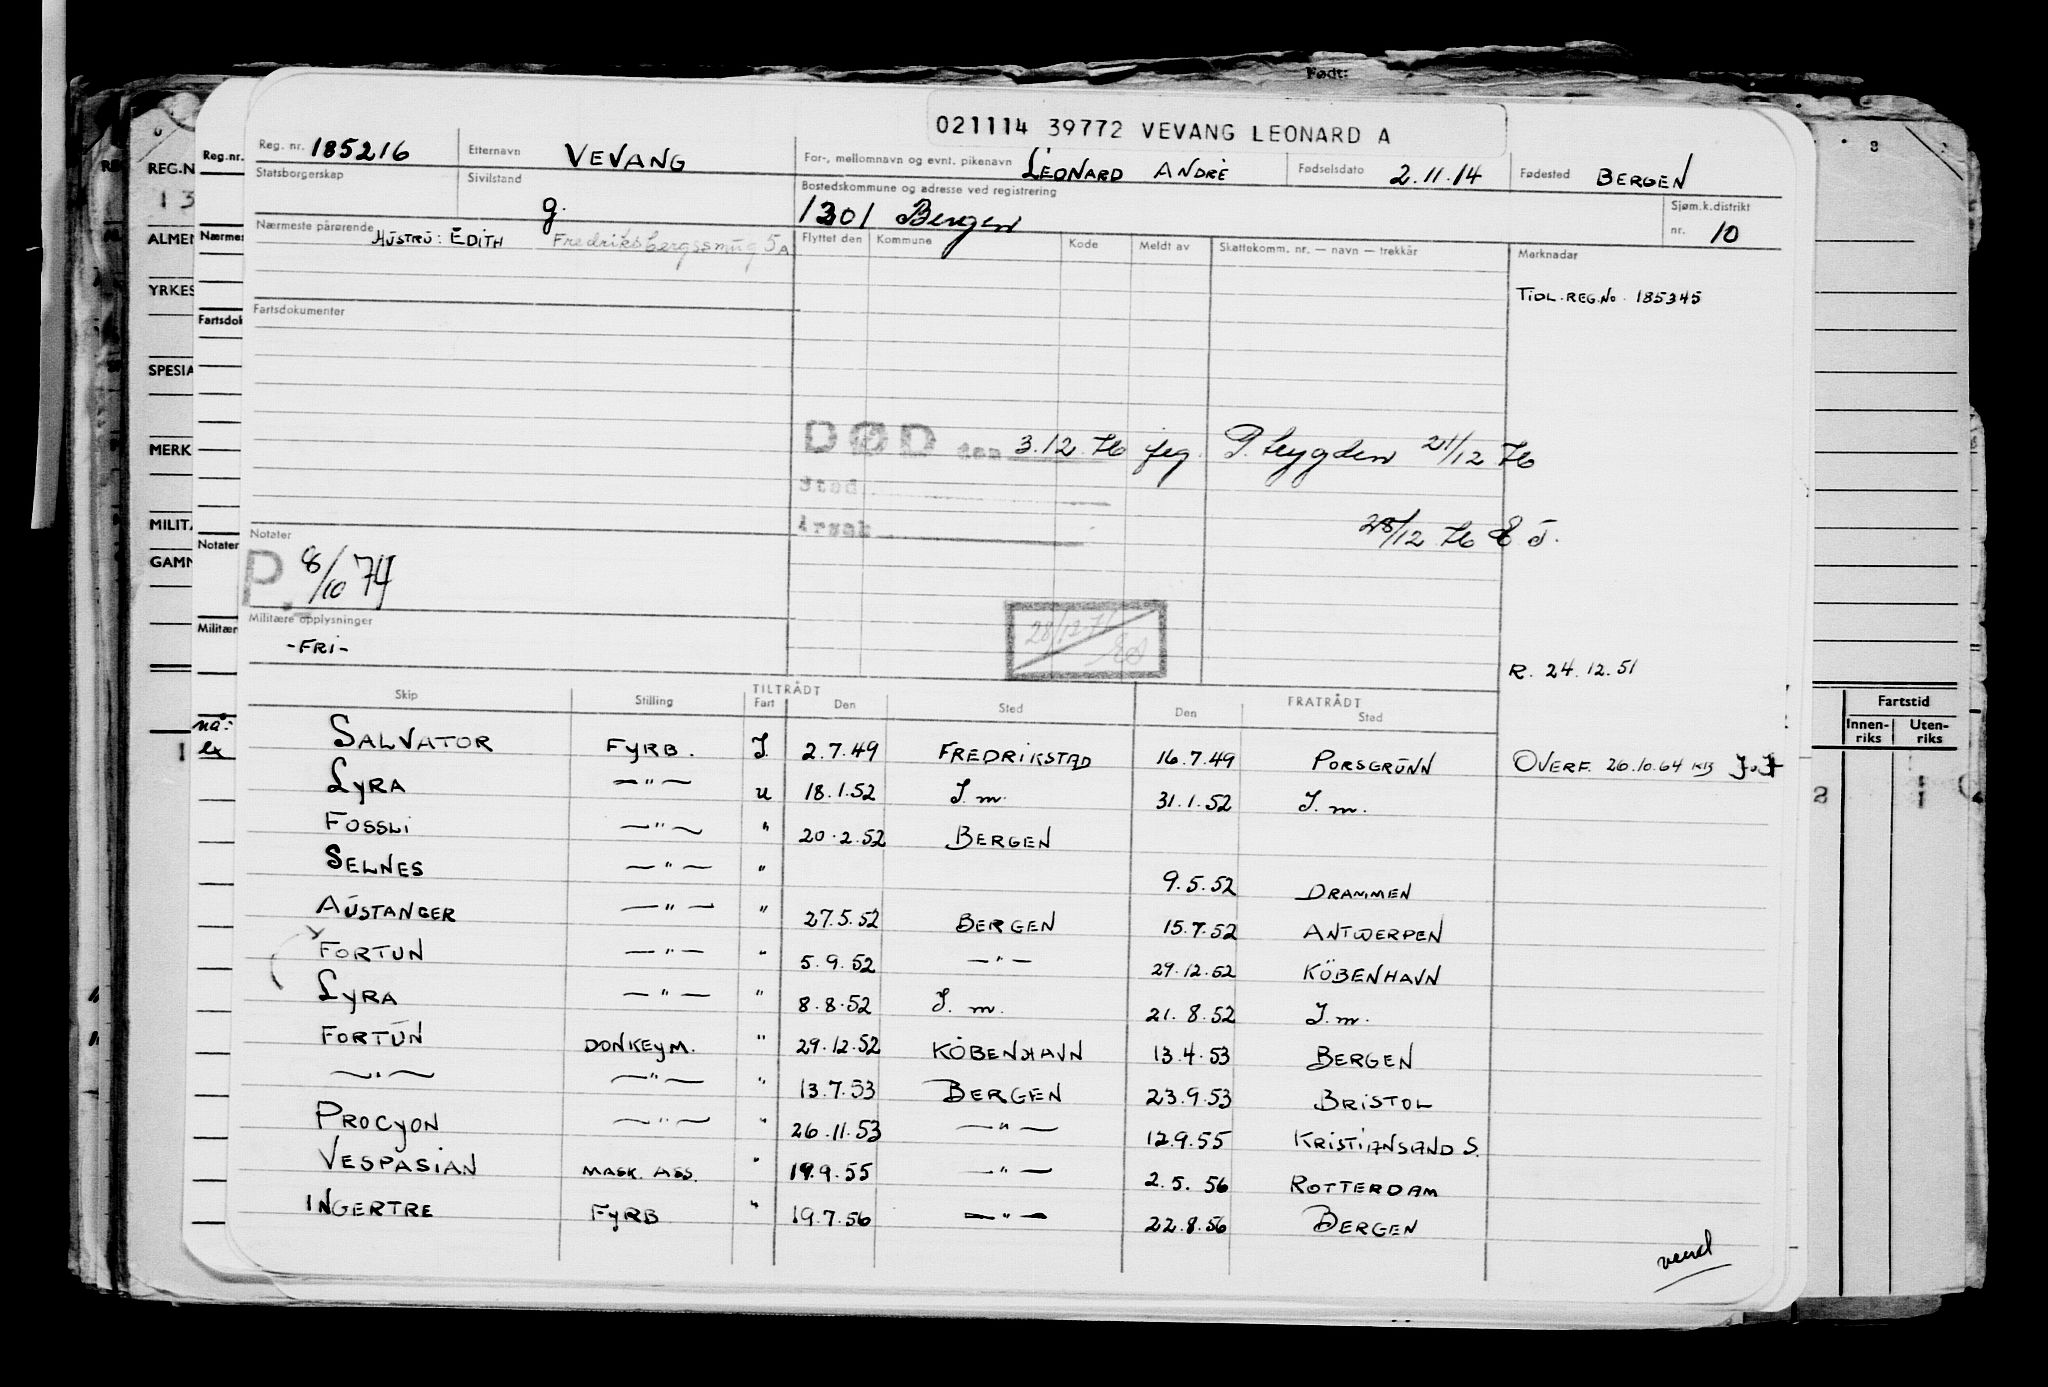 Født:
021114 39772 VEVANG LEONARD A
Reg. nr. 185216 Etternavn VEVANG For-, mellomnavn og evnt. pikenavn LEONARD ANDRÈ Fødselsdato 2.11.14 Fødested BERGEN
Statsborgerskap Sivilstand g. Bostedskommune og adresse ved registrering 1301 Bergen Sjøm.k.distrikt nr. 10
Nærmeste pårørende HUSTRU: EDITH Fredriksbergssmug 5A Flyttet den Kommune Kode Meldt av Skattekomm. nr. — navn — trekkår Merknadar
TIDL. REG. No. 185345
Fartsdokumenter
DØD den 3.12.76 21/12 76
Sted
Årsak 28/12 76
Notater
P. 8/10 74
28/12-76
Militære opplysninger
-FRI-
R. 24.12.51
Skip Stilling TILTRÅDT Fart Den Sted FRATRÅDT Den Sted
SALVATOR FYRB. J. 2.7.49 FREDRIKSTAD 16.7.49 PORSGRUNN OVERF. 26.10.64
LYRA —"— u 18.1.52 J.m. 31.1.52 J.m.
FOSSLI —"— " 20.2.52 BERGEN
SELNES —"— " 9.5.52 DRAMMEN
AUSTANGER —"— " 27.5.52 BERGEN 15.7.52 ANTWERPEN
FORTUN —"— " 5.9.52 —"— 29.12.52 KÖBENHAVN
LYRA —"— " 8.8.52 J.m. 21.8.52 J.m.
FORTUN DONKEYM. " 29.12.52 KÖBENHAVN 13.4.53 BERGEN
—"— —"— " 13.7.53 BERGEN 23.9.53 BRISTOL
PROCYON —"— " 26.11.53 —"— 12.9.55 KRISTIANSAND S.
VESPASIAN MASK. ASS. " 19.9.55 —"— 2.5.56 ROTTERDAM
INGERTRE FYRB " 19.7.56 —"— 22.8.56 BERGEN
vend
Reg.nr.
Nærmes
Fartsdok
Notater
Militær
nå:
ex
REG.N
13
ALMEN
YRKES
SPESIA
MERK
MILITÆ
GAMN
Fartstid
Innen-riks Uten-riks